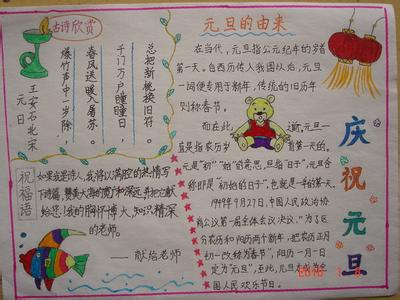 古诗欣赏
元日
王安石 北宋
爆竹声中一岁除,
春风送暖入屠苏。
千门万户曈曈日
总把新桃换旧符。
祝福语
如果我是诗人,我将以满腔的热情写
下诗篇,赞美大海的宽广和深远,并把它献
给您,我的胸怀博大,知识精深
的老师。
——献给老师
元旦的由来
在当代,元旦指公元纪年的岁首
第一天。自西历传入我国以后,元旦
一词便专用于新年,传统的旧历年
则称春节。
而在此
前,元旦一
直是指农历岁
元是"初""始"的意思,旦指"日子",元旦合
称即是"初始的日子",也就是一年的第一天。
1949年9月27日,中国人民政治协
商会议第一届全体会议决议:"为了区
分农历和阳历两个新年,把农历正月
初一改称为春节",阳历一月一日
定为"元旦",至此,元旦才成为全
国人民欢乐节日。
庆祝元旦